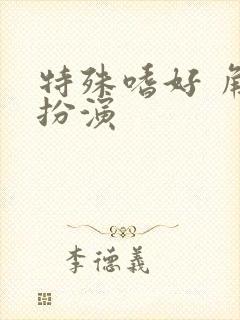 特殊嗜好
扮演
李德義